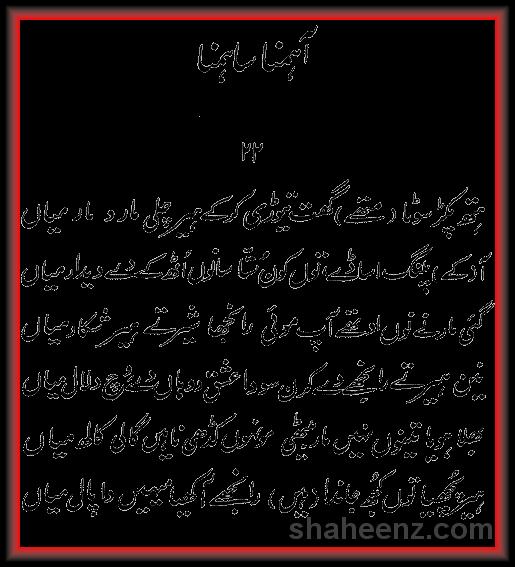 آہمنا ساہمنا
۲۲
ہتھ پکڑ سوٹا دمتھے گھت تیوڑی کر کے ہیر چلی مارد مار میاں
آ دکے پلنگ اساڈے توں کون سُتا سانوں اُٹھ کے دے دیدار میاں
گئی مارنے نوں اوتھے آپ موئی رانجھا شیر تے ہیر شکار میاں
نین ہیر تے رانجھے دے کرن سودا عشق دوہاں دے وچ دلال میاں
بھلا ہویا تینوں نہیں مار بیٹھی مونہوں کڈھی ناہیں گالی گال میاں
ہیر پُچھیا توں کُجھ جاندا ہیں رانجھے آکھیا مہیں دا پالی میاں
shaheenz.com